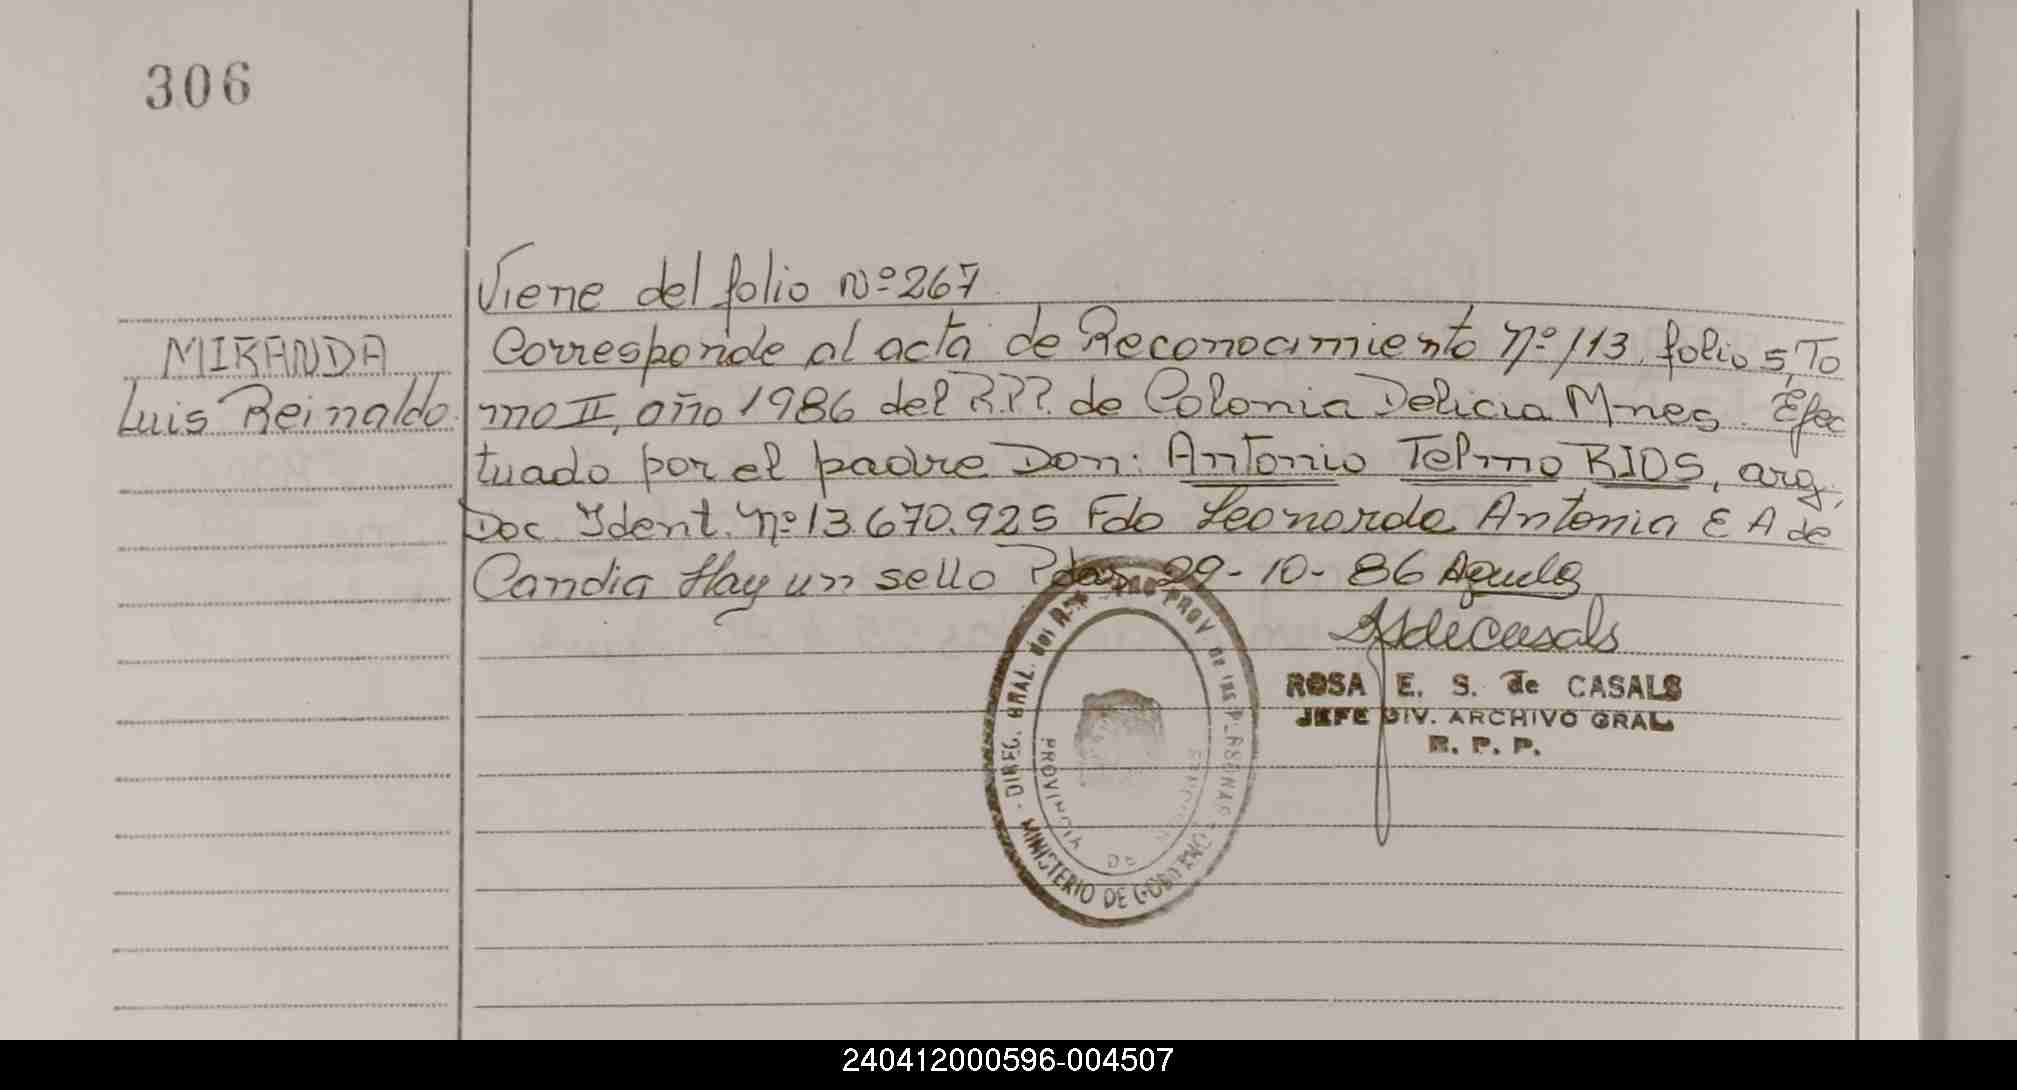 306
Viene del folio Nº 267
MIRANDA
Luis Reinaldo.
Corresponde al acta de Reconocimiento Nº 113 folio 5, To
mo II, año 1986 del R.P.P. de Colonia Delicia Mnes. Efec
tuado por el padre Don: Antonio Telmo RIOS, arg.
Doc. Ident. Nº 13.670.925 Fdo Leonarda Antonia E A de
Candia Hay un sello Pdas 29-10-86
ROSA E. S. de CASALS
JEFE DIV. ARCHIVO GRAL
R. P. P.
DIREC. GRAL. del PROV. de las PERSONAS
MINISTERIO DE GOBIERNO
PROVINCIA DE
240412000596-004507